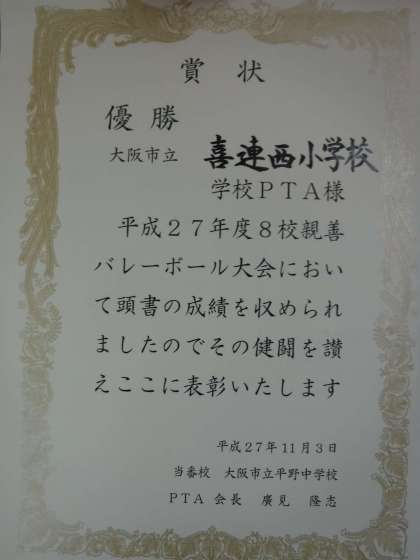 賞状
優勝
大阪市立 喜連西小学校
学校PTA様
平成27年度8校親善
バレーボール大会におい
て頭書の成績を収められ
ましたのでその健闘を讃
えここに表彰いたします
平成27年11月3日
当番校 大阪市立平野中学校
PTA 会長 廣見 隆志